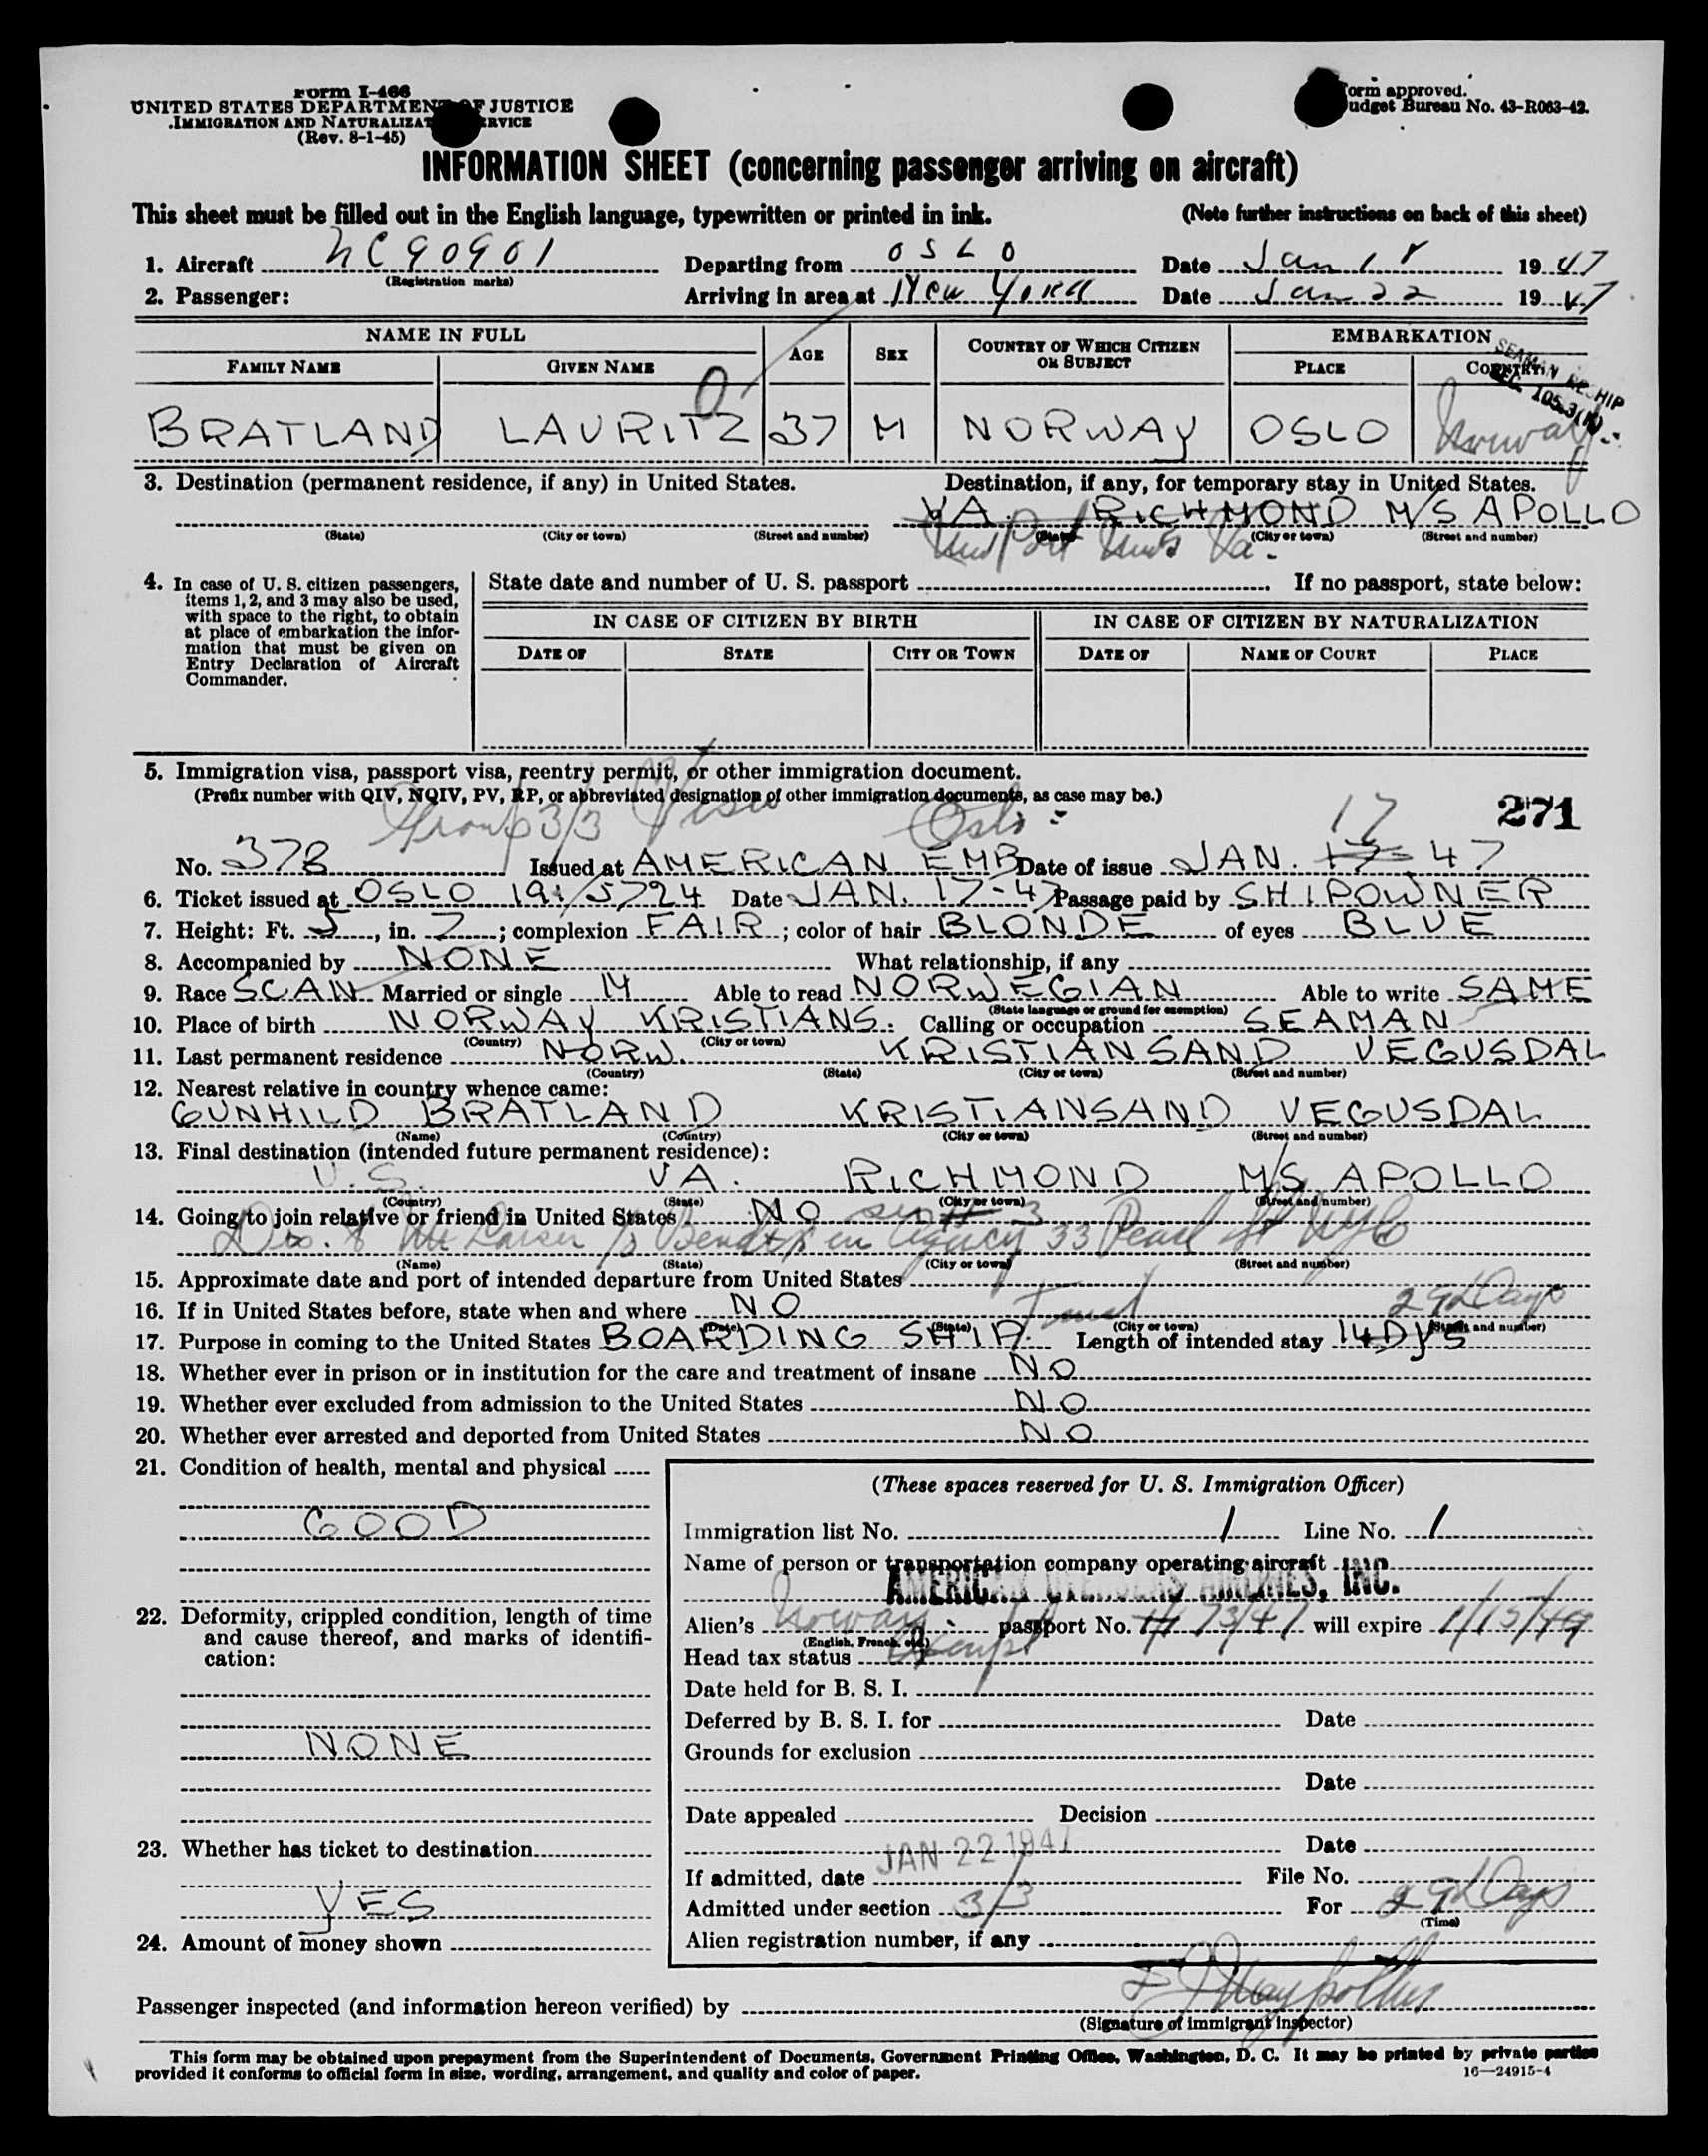 Form I-466
UNITED STATES DEPARTMENT OF JUSTICE
IMMIGRATION AND NATURALIZATION SERVICE
(Rev. 8-1-45)
Form approved.
Budget Bureau No. 43-R063-42.
INFORMATION SHEET (concerning passenger arriving on aircraft)
This sheet must be filled out in the English language, typewritten or printed in ink. (Note further instructions on back of this sheet)
1. Aircraft NC90901 Departing from OSLO Date Jan 18 1947
(Registration marks)
2. Passenger: Arriving in area at New York Date Jan 22 1947
NAME IN FULL AGE SEX COUNTRY OF WHICH CITIZEN OR SUBJECT EMBARKATION
FAMILY NAME GIVEN NAME PLACE COUNTRY
SEAMAN
SEC. 105.3(
BRATLAND LAURITZ 37 M NORWAY OSLO Norway
3. Destination (permanent residence, if any) in United States. Destination, if any, for temporary stay in United States.
VA. RICHMOND M/S APOLLO
(State) (City or town) (Street and number) (State) (City or town) (Street and number)
Newport News Va.
4. In case of U. S. citizen passengers, items 1, 2, and 3 may also be used, with space to the right, to obtain at place of embarkation the information that must be given on Entry Declaration of Aircraft Commander.
State date and number of U. S. passport If no passport, state below:
IN CASE OF CITIZEN BY BIRTH IN CASE OF CITIZEN BY NATURALIZATION
DATE OF STATE CITY OR TOWN DATE OF NAME OF COURT PLACE
5. Immigration visa, passport visa, reentry permit, or other immigration document.
(Prefix number with QIV, NQIV, PV, RP, or abbreviated designation of other immigration documents, as case may be.)
Group 3/3 Visa Oslo 17 271
No. 378 Issued at AMERICAN EMB Date of issue JAN. 17 - 47
6. Ticket issued at OSLO 191/5724 Date JAN. 17-47 Passage paid by SHIPOWNER
7. Height: Ft. 5, in. 7; complexion FAIR; color of hair BLONDE of eyes BLUE
8. Accompanied by NONE What relationship, if any
9. Race SCAN Married or single M Able to read NORWEGIAN Able to write SAME
(State language or ground for exemption)
10. Place of birth NORWAY KRISTIANS. Calling or occupation SEAMAN
(Country) (City or town)
11. Last permanent residence NORW. KRISTIANSAND VEGUSDAL
(Country) (State) (City or town) (Street and number)
12. Nearest relative in country whence came:
GUNHILD BRATLAND KRISTIANSAND VEGUSDAL
(Name) (Country) (City or town) (Street and number)
13. Final destination (intended future permanent residence):
U.S. VA. RICHMOND M/S APOLLO
(Country) (State) (City or town) (Street and number)
14. Going to join relative or friend in United States NO
Agency 33 Pearl St NYC
(Name) (State) (City or town) (Street and number)
15. Approximate date and port of intended departure from United States
16. If in United States before, state when and where NO
29 Days
(Date) (State) (City or town) (Street and number)
17. Purpose in coming to the United States BOARDING SHIP. Length of intended stay 14 DYS
18. Whether ever in prison or in institution for the care and treatment of insane NO
19. Whether ever excluded from admission to the United States NO
20. Whether ever arrested and deported from United States NO
21. Condition of health, mental and physical
GOOD
22. Deformity, crippled condition, length of time and cause thereof, and marks of identification:
NONE
23. Whether has ticket to destination
YES
24. Amount of money shown
(These spaces reserved for U. S. Immigration Officer)
Immigration list No. 1 Line No. 1
Name of person or transportation company operating aircraft
AMERICAN OVERSEAS AIRLINES, INC.
Alien's Norway passport No. 73/47 will expire 1/15/49
(English, French, etc.)
Head tax status Exempt
Date held for B. S. I.
Deferred by B. S. I. for Date
Grounds for exclusion
Date
Date appealed Decision
Date
If admitted, date JAN 22 1947 File No.
Admitted under section 3/3 For 29 Days
(Time)
Alien registration number, if any
Passenger inspected (and information hereon verified) by
(Signature of immigrant inspector)
This form may be obtained upon prepayment from the Superintendent of Documents, Government Printing Office, Washington, D. C. It may be printed by private parties
provided it conforms to official form in size, wording, arrangement, and quality and color of paper. 16—24915-4